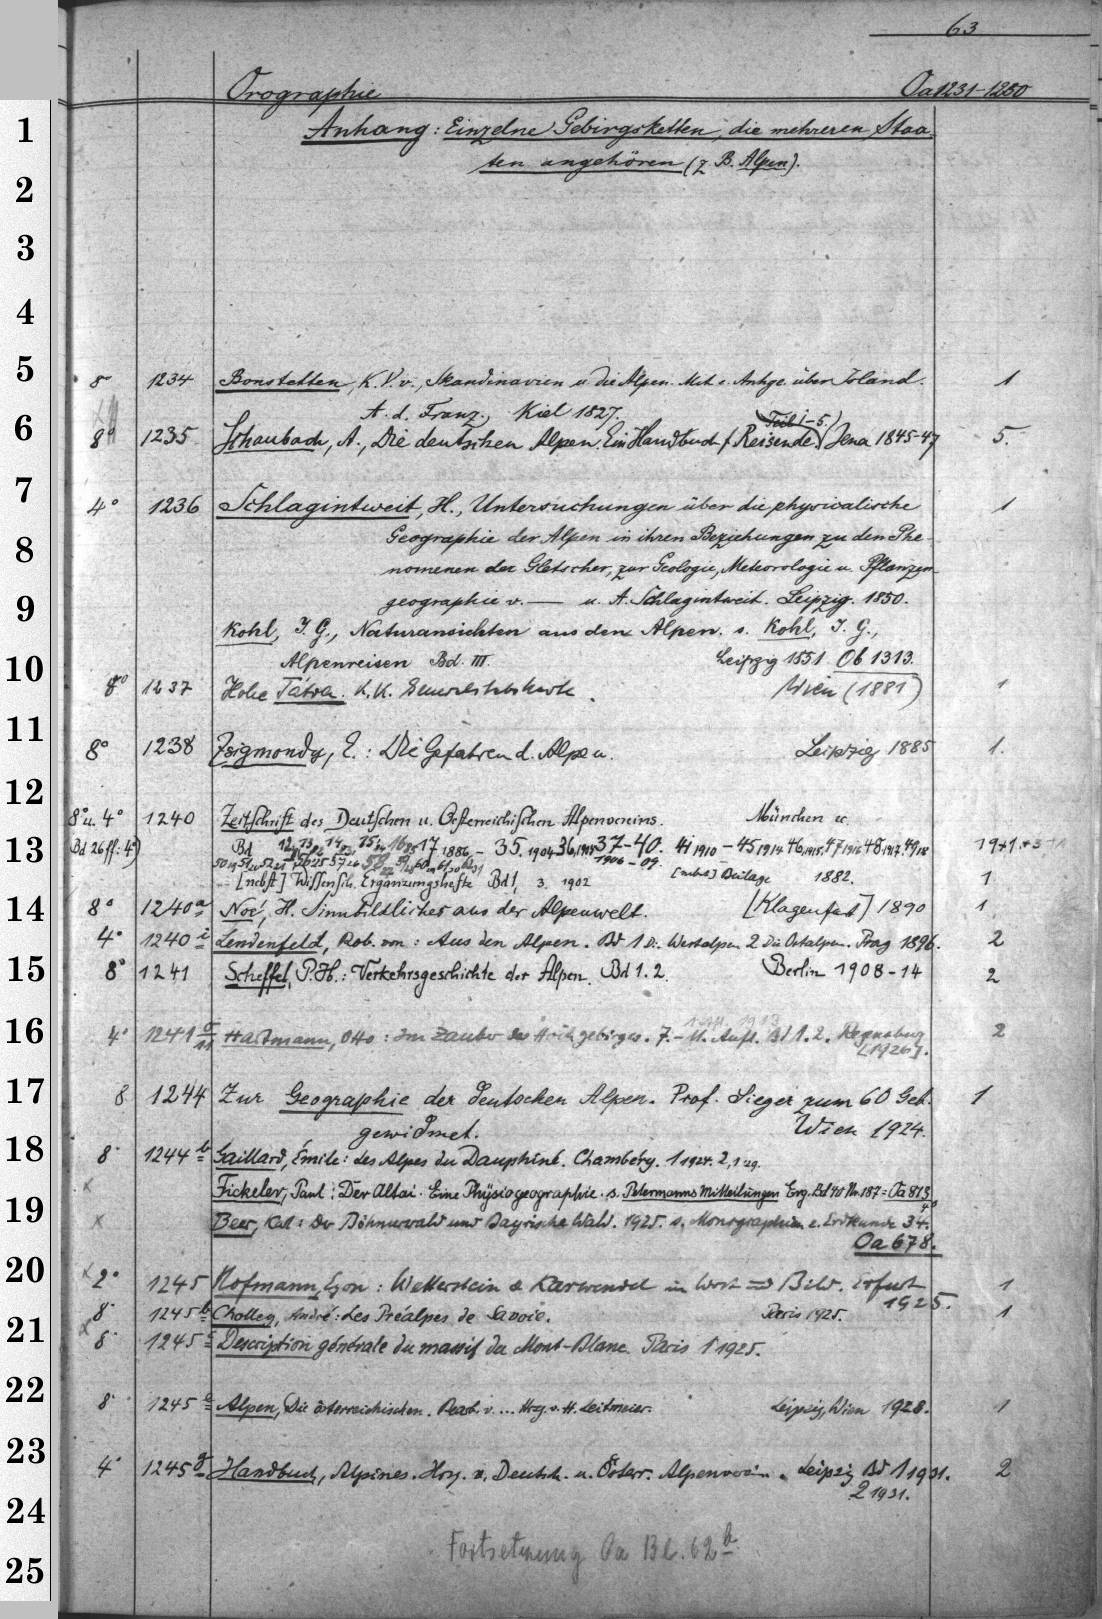 63
Orographie Oa 1231-1250
Anhang: Einzelne Gebirgsketten, die mehreren Staa-
ten angehören (z. B. Alpen).
1
2
3
4
5
8° 1234 Bonstetten, K. V. v., Skandinavien u. die Alpen. Mit e. Anhge über Island. 1
A. d. Franz., Kiel 1827.
6
Teil 1-5.
8° 1235 Schaubach, A., Die deutschen Alpen. Ein Handbuch f. Reisende. Jena 1845-47 5.
7
4° 1236 Schlagintweit, H., Untersuchungen über die physicalische 1
8
Geographie der Alpen in ihren Beziehungen zu den Phe-
nomenen der Gletscher, zur Geologie, Meteorologie u. Pflanzen-
9
geographie v. — u. A. Schlagintweit. Leipzig. 1850.
Kohl, J. G., Naturansichten aus den Alpen. s. Kohl, J. G.,
10
Alpenreisen Bd. III. Leipzig 1851 Ob 1313.
8° 1237 Hohe Tátra. K. K. Generalstabskarte. Wien (1881) 1
11
8° 1238 Zsigmondy, E.: Die Gefahren d. Alpen. Leipzig 1885 1.
12
8° u. 4° 1240 Zeitschrift des Deutschen u. Oesterreichischen Alpenvereins. München u.
13
(Bd 26 ff: 4°) Bd 17 1886 - 35. 1904 36, 1905 37-40. 1906-09 41 1910 - 45 1914 46, 1915. 47 1916 48 1917. 49 1918 19+1.+3
[nebst] Beilage 1882.
[nebst] Wissensch. Ergänzungshefte Bd 1, 3. 1902 1
14
8° 1240 a Noé, H. Sinnbildliches aus der Alpenwelt. [Klagenfurt] 1890 1
4° 1240 i Lendenfeld, Rob. von: Aus den Alpen. Bd 1 Die Westalpen 2 Die Ostalpen. Prag 1896. 2
15
8° 1241 Scheffel, P. H.: Verkehrsgeschichte der Alpen. Bd 1. 2. Berlin 1908-14 2
16
4° 1241 Hartmann, Otto: Im Zauber des Hochgebirges. 7.-11. Aufl. Bd 1. 2. Regensburg 2
[1926].
17
8 1244 Zur Geographie der deutschen Alpen. Prof. Sieger zum 60 Geb. 1
gewidmet. Wien 1924.
18
8° 1244 b Gaillard, Émile: Les Alpes du Dauphiné. Chambéry. 1 1924. 2, 1 29.
x Fickeler, Paul: Der Altai. Eine Physiogeographie. s. Petermanns Mitteilungen Erg. Bd 40 Nr. 187 = Oa 813 4°
19
x Beer, Karl: Der Böhmerwald und Bayrische Wald. 1925. s. Monographien z. Erdkunde 34.
Oa 678.
20
x 2° 1245 Hofmann, Egon: Wetterstein & Karwendel in Wort und Bild. Erfurt 1
1925.
8° 1245 b Cholley, André: Les Préalpes de Savoie. Paris 1925. 1
21
x 8° 1245 c Description générale du massif du Mont-Blanc. Paris 1 1925.
22
8° 1245 e Alpen, Die österreichischen. Bearb. v. ... Hrg. v. H. Leitmeier. Leipzig, Wien 1928. 1
23
4° 1245 g Handbuch, Alpines. Hrg. v. Deutsch. u. Österr. Alpenverein. Leipzig Bd 1 1931. 2
2 1931.
24
Fortsetzung Oa Bl. 62 b
25